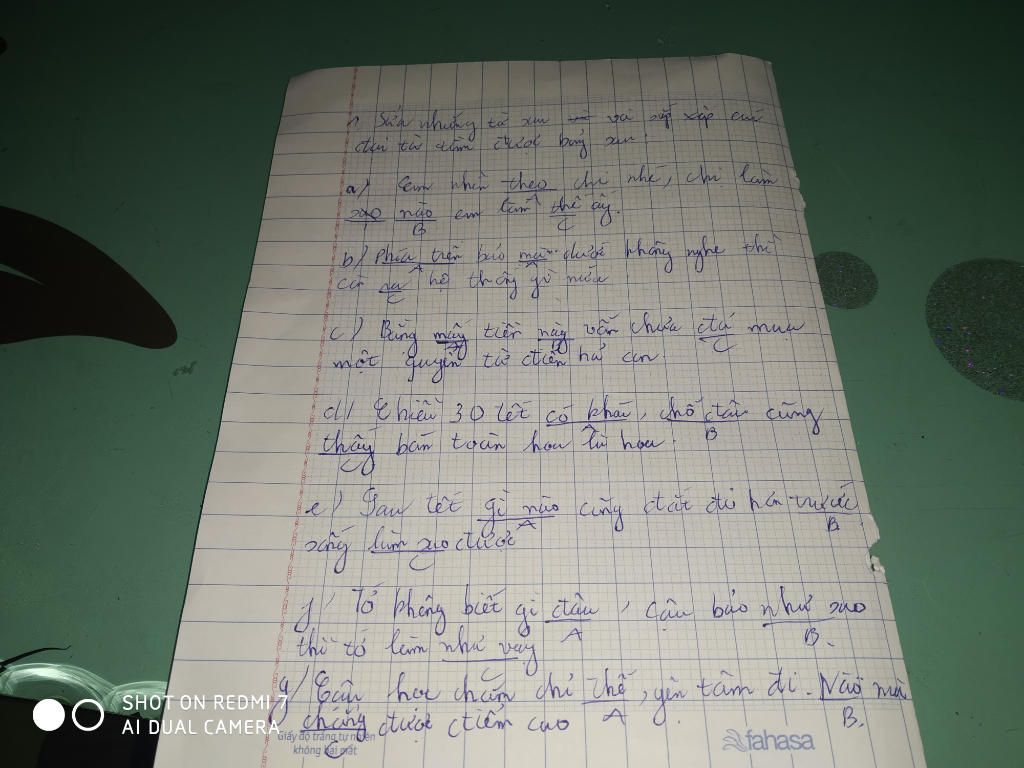 1. Sửa những từ sau và sắp xếp các
đại từ tìm được bảng sau:
a) Em nhìn theo chị nhé, chị làm
sao nào em làm thế ấy.
B C
b) Phía trên bảo mà dưới không nghe thì
A
còn ra hệ thống gì nữa
C
c) Bằng mấy tiền này vẫn chưa đủ mua
A B C
một quyển từ điển hả con.
d) Chiều 30 tết có khác, chỗ đâu cũng
B
thấy bán toàn hoa là hoa.
C
e) Sau tết gì nào cũng đắt đỏ hơn trước
A B
sống làm sao được
C
f) Tớ không biết gì đâu, cậu bảo như sao
A B.
thì tớ làm như vay
C
g) Cậu học chăm chỉ thế, yên tâm đi. Nào mà
A B.
chẳng được điểm cao
C
SHOT ON REDMI 7
AI DUAL CAMERA
Giấy độ trắng tự nhiên
không hại mắt
fahasa